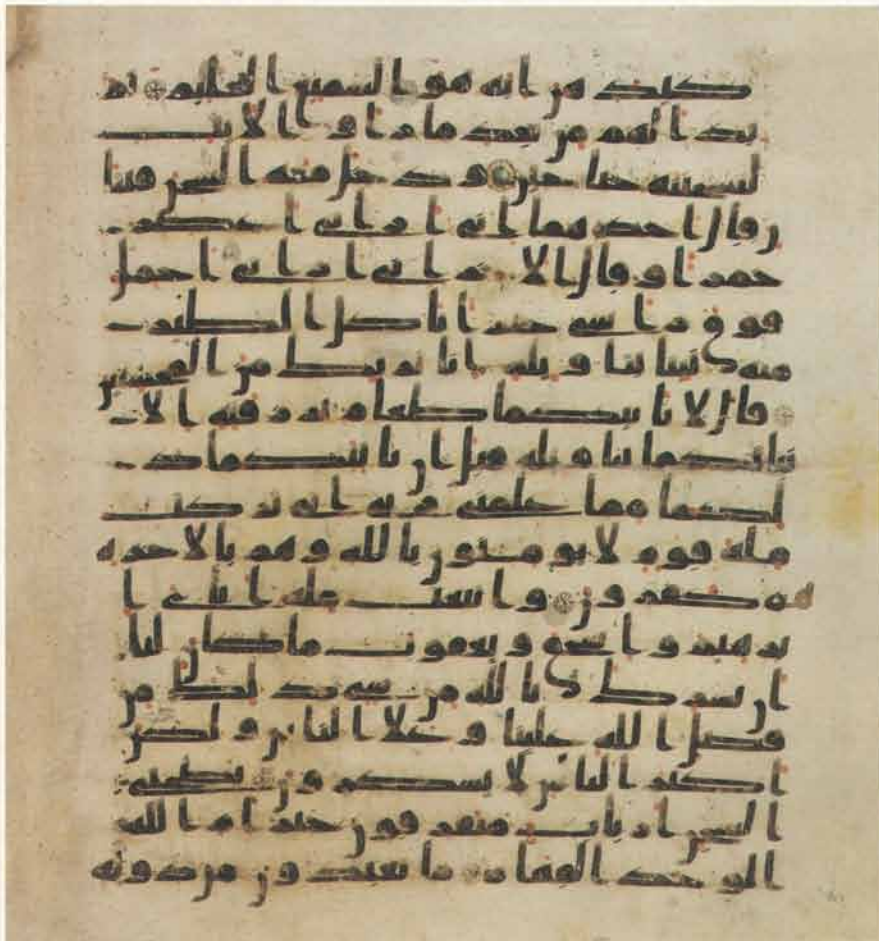 كيدهن انه هو السميع العليم ثم
بدا لهم من بعد ما راوا الايت
ليسجننه حتى حين ودخل معه السجن فتيا
ن قال احدهما اني ارىني اعصر
خمرا وقال الاخر اني ارىني احمل
فوق راسي خبزا تاكل الطير
منه نبئنا بتاويله انا نريك من المحسنين
قال لا ياتيكما طعام ترزقنه الا
نباتكما بتاويله قبل ان ياتيكما ذ
لكما مما علمني ربي اني تركت
ملة قوم لا يومنون بالله وهم بالاخرة
هم كفرون واتبعت ملة اباي ا
برهيم واسحق ويعقوب ما كان لنا
ان نشرك بالله من شيء ذلك من
فضل الله علينا وعلى الناس ولكن
اكثر الناس لا يشكرون يصحبي
السجن ارباب متفرقون خير ام الله
الوحد القهار ما تعبدون من دونه